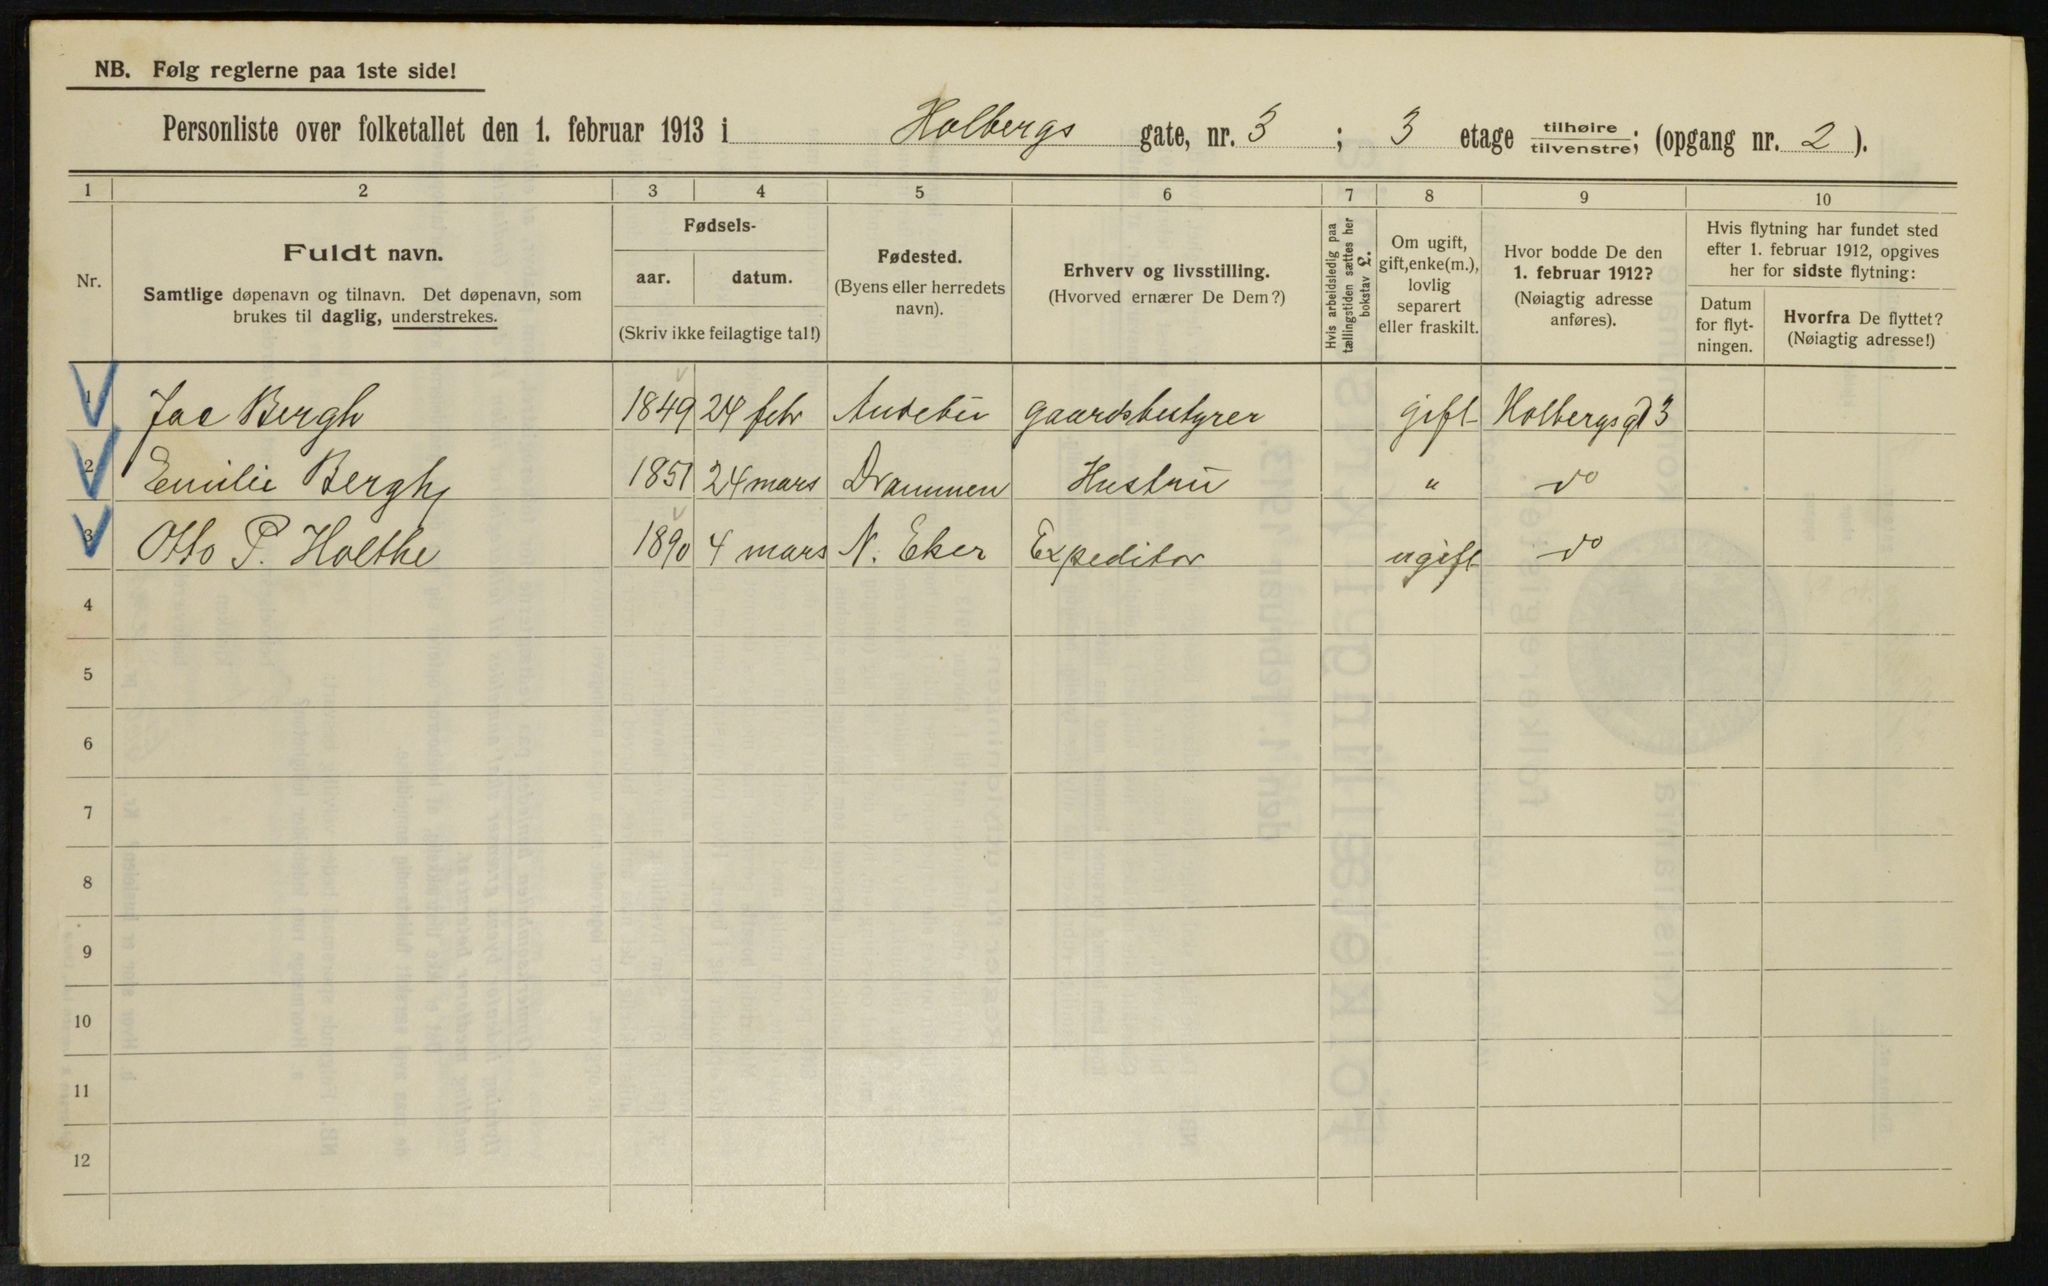 NB. Følg reglerne paa 1ste side!
Personliste over folketallet den 1. februar 1913 i Holbergs gate, nr. 3 ; 3 etage tilhøire / tilvenstre; (opgang nr. 2 ).
1 2 3 4 5 6 7 8 9 10
Nr.
Fuldt navn.
Samtlige døpenavn og tilnavn. Det døpenavn, som
brukes til daglig, understrekes.
Fødsels-
aar. datum.
(Skriv ikke feilagtige tal!)
Fødested.
(Byens eller herredets
navn).
Erhverv og livsstilling.
(Hvorved ernærer De Dem?)
Hvis arbeidsledig paa
tællingstiden sættes her
bokstav l.
Om ugift,
gift, enke(m.),
lovlig
separert
eller fraskilt.
Hvor bodde De den
1. februar 1912?
(Nøiagtig adresse
anføres).
Hvis flytning har fundet sted
efter 1. februar 1912, opgives
her for sidste flytning:
Datum
for flyt-
ningen.
Hvorfra De flyttet?
(Nøiagtig adresse!)
1 Jac Bergh 1849 24 febr Andebu gaardsbestyrer gift Holbergsgt 3
2 Emilie Bergh 1851 24 mars Drammen Hustru " do
3 Otto P. Holthe 1890 4 mars N. Eker Expeditor ugift do
4
5
6
7
8
9
10
11
12